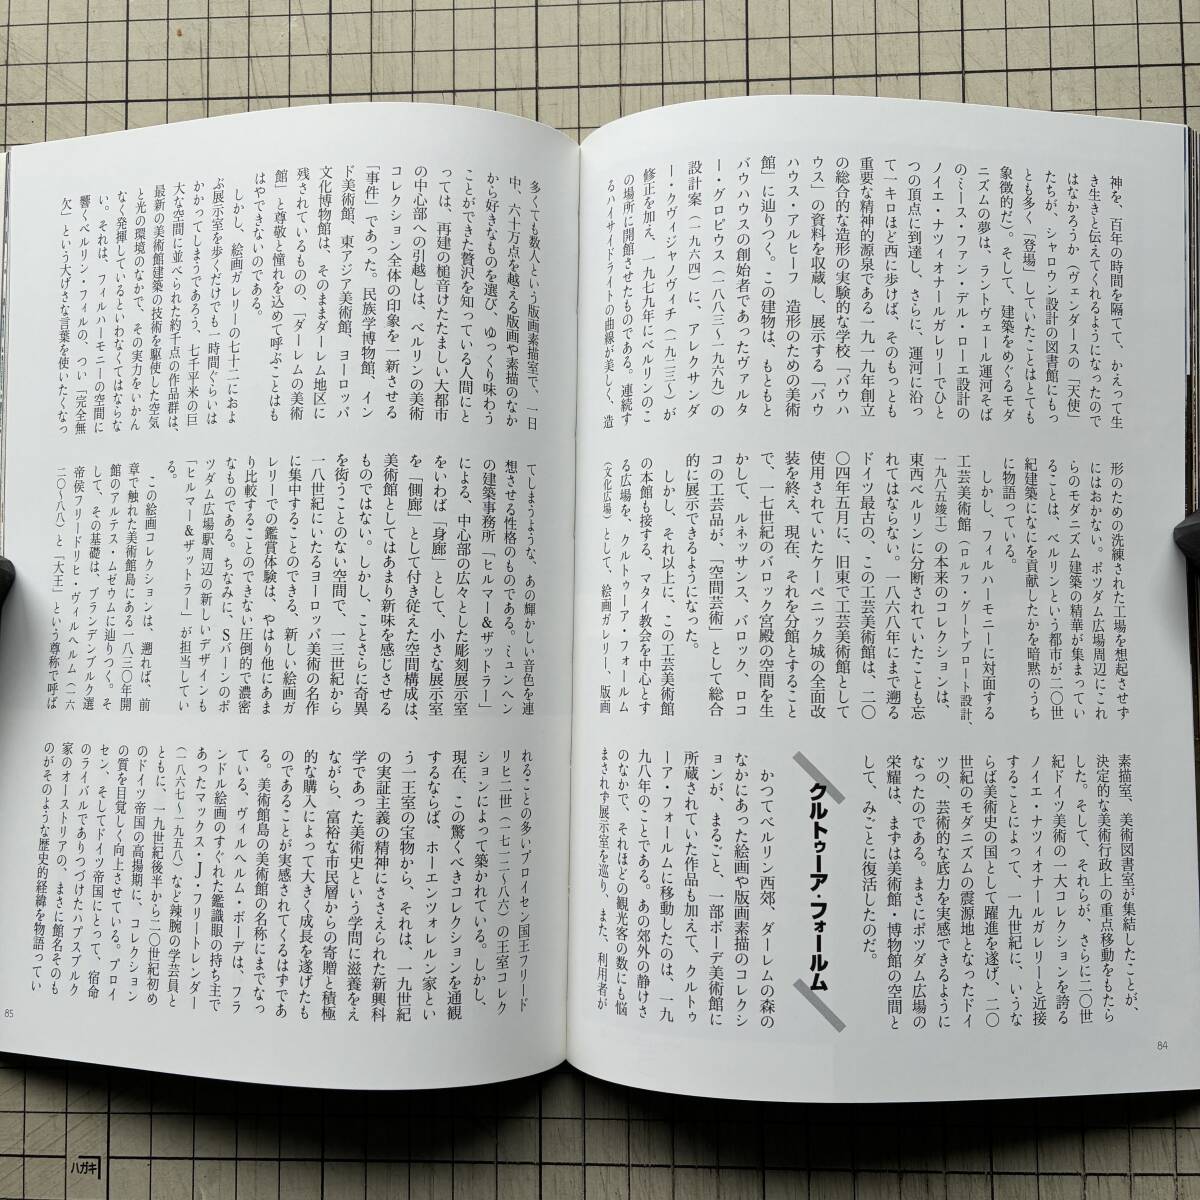 神を、百年の時間を隔てて、かえって生
き生きと伝えてくれるようになったので
はなかろうか（ヴェンダースの「天使」
たちが、シャロウン設計の図書館にもっ
とも多く「登場」していたことはとても
象徴的だ）。そして、建築をめぐるモダ
ニズムの夢は、ラントヴェール運河そば
のミース・ファン・デル・ローエ設計の
ノイエ・ナツィオナルガレリーでひと
つの頂点に到達し、さらに、運河に沿っ
て一キロほど西に歩けば、そのもっとも
重要な精神的源泉である一九一九年創立
の総合的な造形の実験的な学校「バウハ
ウス」の資料を収蔵し、展示する「バウ
ハウス・アルヒーフ　造形のための美術
館」に辿りつく。この建物は、もともと
バウハウスの創始者であったヴァルタ
ー・グロピウス（一八八三〜一九六九）の
設計案（一九六四）に、アレクサンダ
ー・クヴィジャノヴィチ（一九二三〜）が
修正を加え、一九七九年にベルリンのこ
の場所に開館させたものである。連続す
るハイサイドライトの曲線が美しく、造
形のための洗練された工場を想起させず
にはおかない。ポツダム広場周辺にこれ
らのモダニズム建築の精華が集まってい
ることは、ベルリンという都市が二〇世
紀建築になにを貢献したかを暗黙のうち
に物語っている。
しかし、フィルハーモニーに対面する
工芸美術館（ロルフ・グートブロート設計、
一九八五竣工）の本来のコレクションは、
東西ベルリンに分断されていたことも忘
れてはならない。一八六八年にまで遡る
ドイツ最古の、この工芸美術館は、二〇
〇四年五月に、旧東で工芸美術館として
使用されていたケーペニック城の全面改
装を終え、現在、それを分館とすること
で、一七世紀のバロック宮殿の空間を生
かして、ルネッサンス、バロック、ロコ
コの工芸品が、「空間芸術」として総合
的に展示できるようになった。
しかし、それ以上に、この工芸美術館
の本館も接する、マタイ教会を中心とす
る広場を、クルトゥーア・フォールム
（文化広場）として、絵画ガレリー、版画
素描室、美術図書室が集結したことが、
決定的な美術行政上の重点移動をもたら
した。そして、それらが、さらに二〇世
紀ドイツ美術の一大コレクションを誇る
ノイエ・ナツィオナールガレリーと近接
することによって、一九世紀に、いうな
らば美術史の国として躍進を遂げ、二〇
世紀のモダニズムの震源地となったドイ
ツの、芸術的な底力を実感できるように
なったのである。まさにポツダム広場の
栄耀は、まずは美術館・博物館の空間と
して、みごとに復活したのだ。
クルトゥーア・フォールム
かつてベルリン西郊、ダーレムの森の
なかにあった絵画や版画素描のコレクシ
ョンが、まるごと、一部ボーデ美術館に
所蔵されていた作品も加えて、クルトゥ
ーア・フォールムに移動したのは、一九
九八年のことである。あの郊外の静けさ
のなかで、それほどの観光客の数にも悩
まされず展示室を巡り、また、利用者が
84
多くても数人という版画素描室で、一日
中、六十万点を越える版画や素描のなか
から好きなものを選び、ゆっくり味わう
ことができた贅沢を知っている人間にと
っては、再建の槌音けたたましい大都市
の中心部への引越しは、ベルリンの美術
コレクション全体の印象を一新させる
「事件」であった。民族学博物館、イン
ド美術館、東アジア美術館、ヨーロッパ
文化博物館は、そのままダーレム地区に
残されているものの、「ダーレムの美術
館」と尊敬と憧れを込めて呼ぶことはも
はやできないのである。
しかし、絵画ガレリーの七十二におよ
ぶ展示室を歩くだけでも一時間ぐらいは
かかってしまうであろう、七千平米の巨
大な空間に並べられた約千点の作品群は、
最新の美術館建築の技術を駆使した空気
と光の環境のなかで、その実力をいかん
なく発揮しているといわなくてはならな
い。それは、フィルハーモニーの空間に
響くベルリン・フィルの、つい「完全無
欠」という大げさな言葉を使いたくなっ
てしまうような、あの輝かしい音色を連
想させる性格のものである。ミュンヘン
の建築事務所「ヒルマー＆ザットラー」
による、中心部の広々とした彫刻展示室
をいわば「身廊」として、小さな展示室
を「側廊」として付き従えた空間構成は、
美術館としてはあまり新味を感じさせる
ものではない。しかし、ことさらに奇異
を衒うことのない空間で、一三世紀から
一八世紀にいたるヨーロッパ美術の名作
に集中することのできる、新しい絵画ガ
レリーでの鑑賞体験は、やはり他にあま
り比較することのできない圧倒的で濃密
なものである。ちなみに、Sバーンのポ
ツダム広場駅周辺の新しいデザインも
「ヒルマー＆ザットラー」が担当してい
る。
この絵画コレクションは、遡れば、前
章で触れた美術館島にある一八三〇年開
館のアルテス・ムゼウムに辿りつく。そ
して、その基礎は、ブランデンブルク選
帝侯フリードリヒ・ヴィルヘルム（一六
二〇〜八八）と「大王」という尊称で呼ば
れることの多いプロイセン国王フリード
リヒ二世（一七一二〜八六）の王室コレク
ションによって築かれている。しかし、
現在、この驚くべきコレクションを通観
するならば、ホーエンツォレルン家とい
う一王室の宝物から、それは、一九世紀
の実証主義の精神にささえられた新興科
学であった美術史という学問に滋養をえ
ながら、富裕な市民層からの寄贈と積極
的な購入によって大きく成長を遂げたも
のであることが実感されてくるはずであ
る。美術館島の美術館の名称にまでなっ
ている、ヴィルヘルム・ボーデは、フラ
ンドル絵画のすぐれた鑑識眼の持ち主で
あったマックス・J・フリートレンダー
（一八六七〜一九五八）など辣腕の学芸員と
ともに、一九世紀後半から二〇世紀初め
のドイツ帝国の高揚期に、コレクション
の質を目覚しく向上させている。プロイ
セン、そしてドイツ帝国にとって、宿命
のライバルでありつづけたハプスブルク
家のオーストリアの、まさに館名そのも
のがそのような歴史的経緯を物語ってい
85
ハガキ